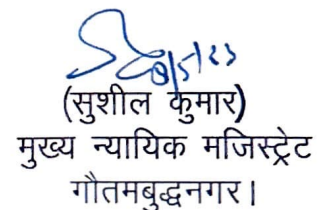 8/5/23
(सुशील कुमार)
मुख्य न्यायिक मजिस्ट्रेट
गौतमबुद्धनगर।